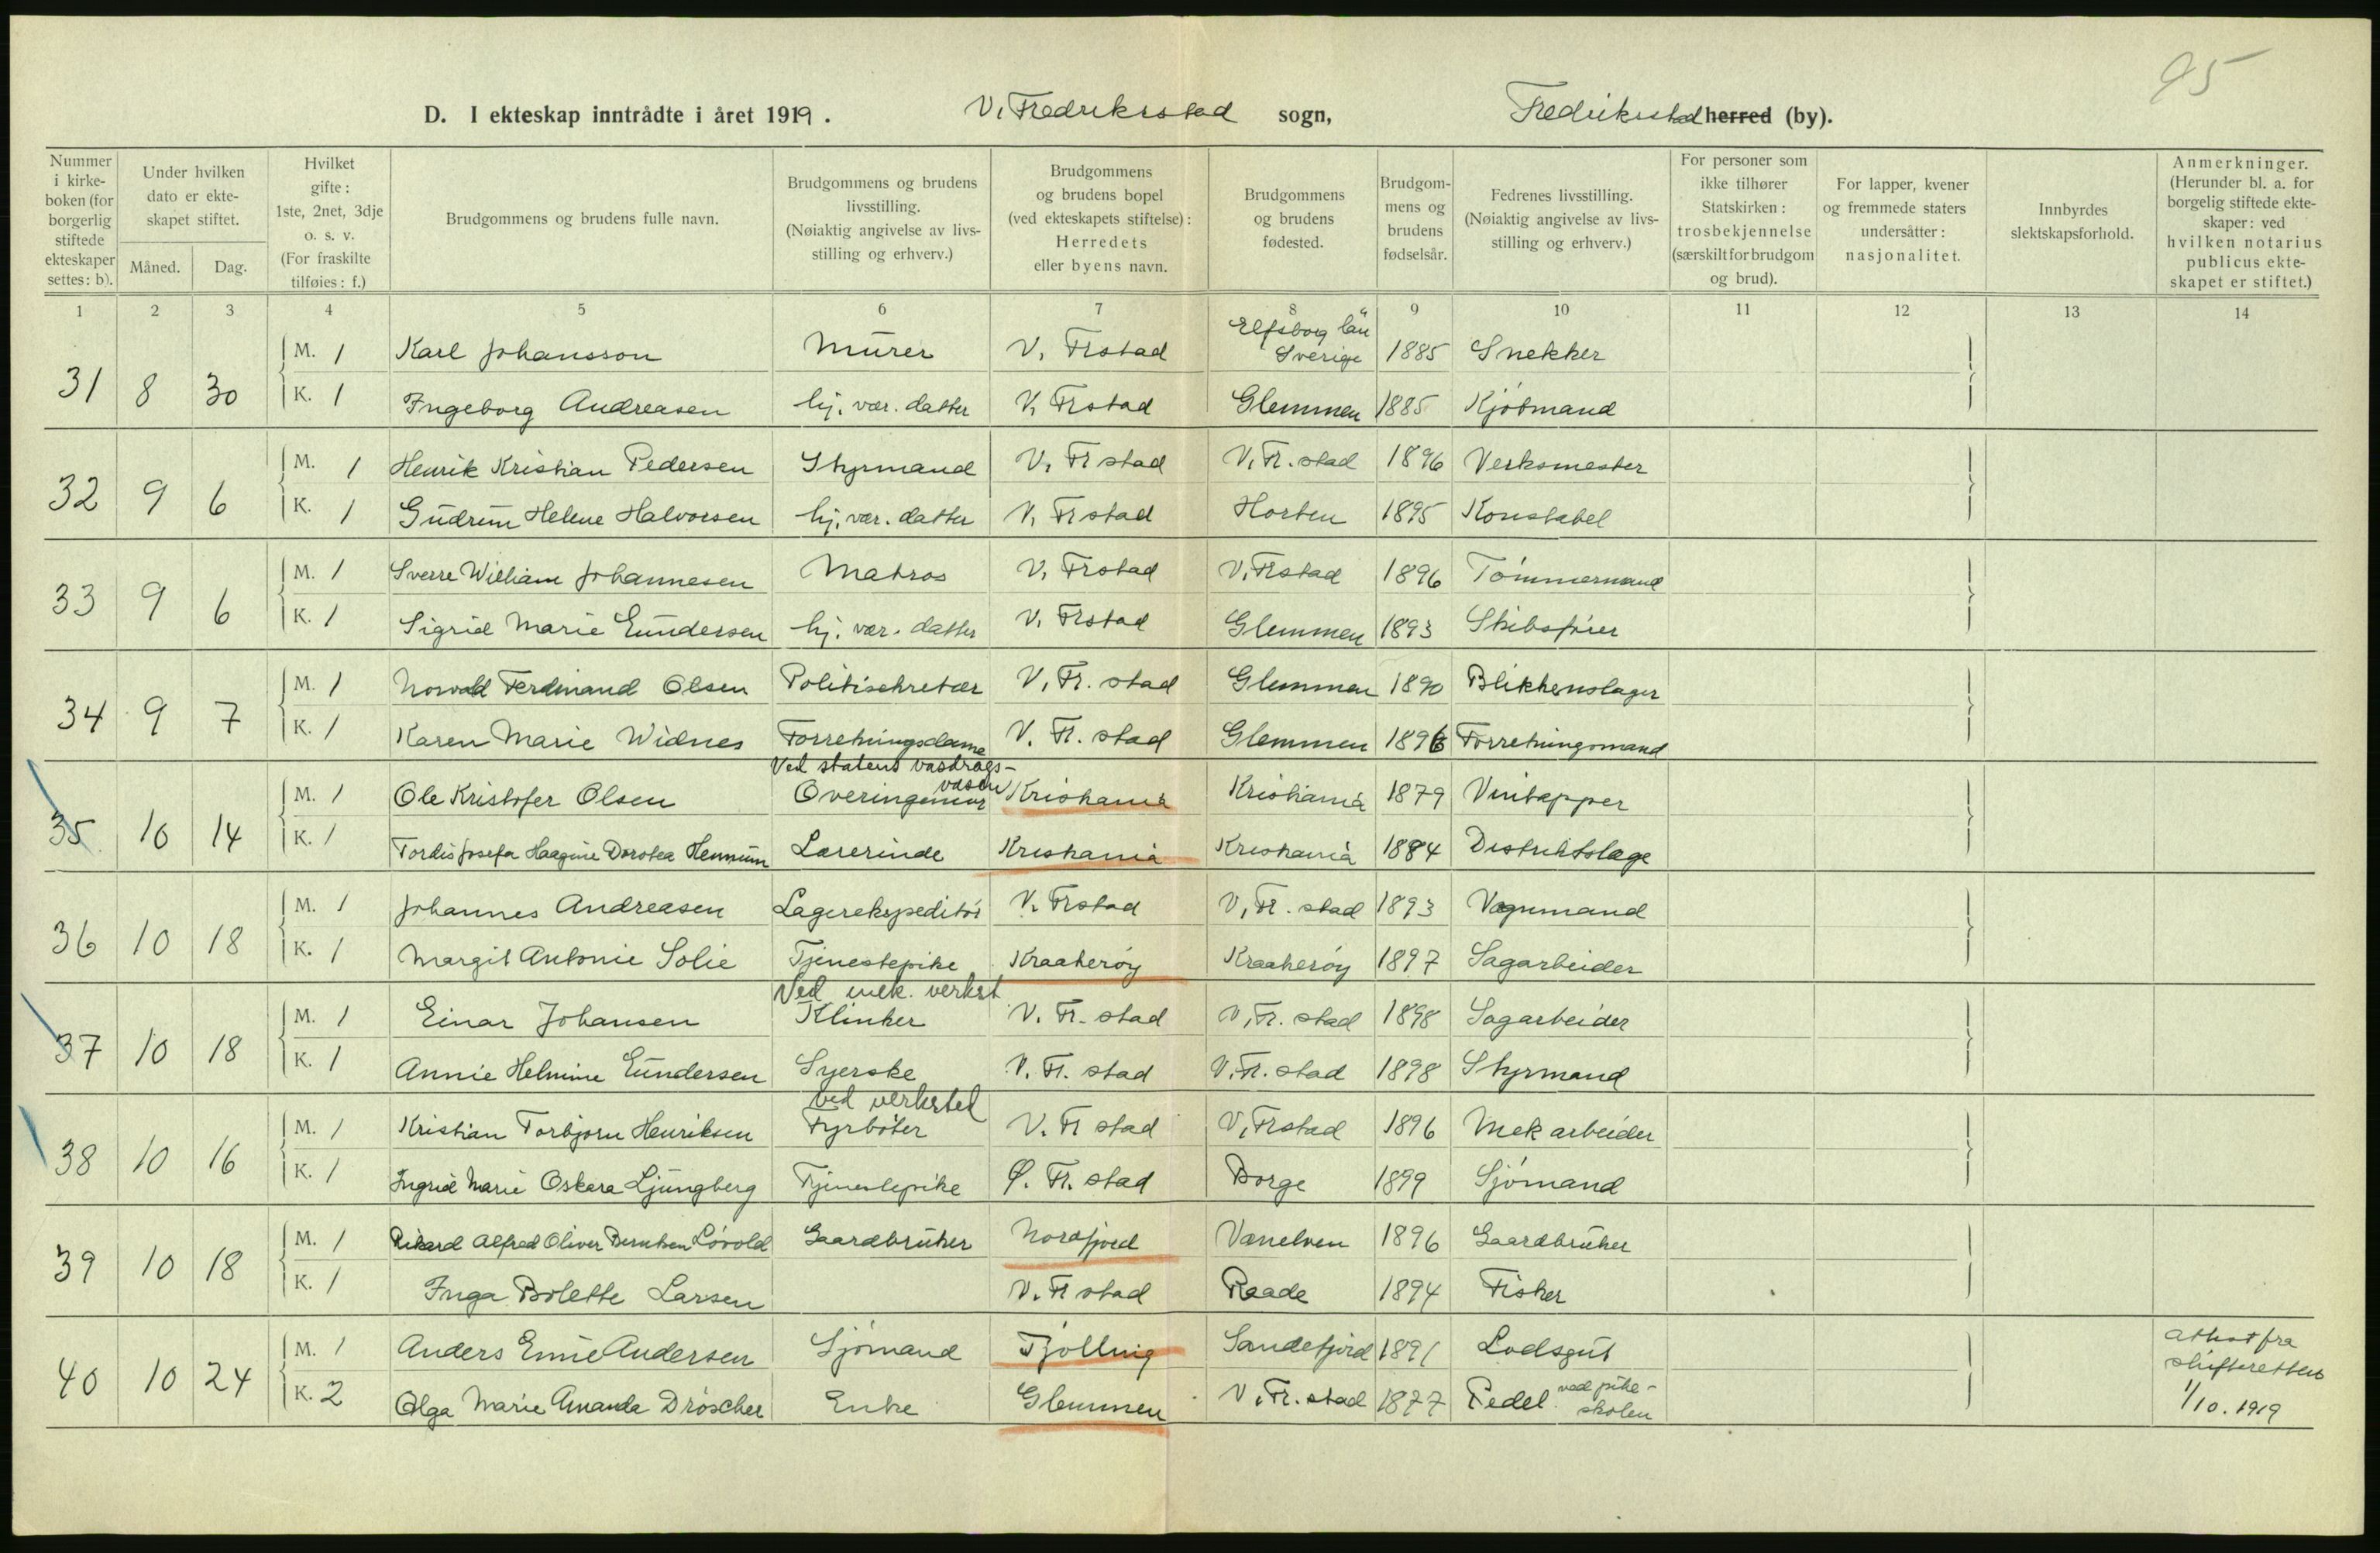 95
D. I ekteskap inntrådte i året 1919. V. Fredriksstad sogn, Fredriksstad herred (by).
Nummer i kirkeboken (for borgerlig stiftede ekteskaper settes: b).
Under hvilken dato er ekteskapet stiftet.
Måned. Dag.
Hvilket gifte: 1ste, 2net, 3dje o. s. v. (For fraskilte tilføies: f.)
Brudgommens og brudens fulle navn.
Brudgommens og brudens livsstilling. (Nøiaktig angivelse av livsstilling og erhverv.)
Brudgommens og brudens bopel (ved ekteskapets stiftelse): Herredets eller byens navn.
Brudgommens og brudens fødested.
Brudgommens og brudens fødselsår.
Fedrenes livsstilling. (Nøiaktig angivelse av livsstilling og erhverv.)
For personer som ikke tilhører Statskirken: trosbekjennelse (særskilt for brudgom og brud).
For lapper, kvener og fremmede staters undersåtter: nasjonalitet.
Innbyrdes slektskapsforhold.
Anmerkninger. (Herunder bl. a. for borgelig stiftede ekteskaper: ved hvilken notarius publicus ekteskapet er stiftet.)
1 2 3 4 5 6 7 8 9 10 11 12 13 14
31 8 30 M. 1 Karl Johansson Murer V. Frstad Elfsborg län Sverige 1885 Snekker
K. 1 Ingeborg Andreasen hj. vær. datter V. Frstad Glemmen 1885 Kjöbmand
32 9 6 M. 1 Henrik Kristian Pedersen Styrmand V. Fr stad V. Fr. stad 1896 Verksmester
K. 1 Gudrun Helene Halvorsen hj. vær. datter V. Fr stad Horten 1895 Konstabel
33 9 6 M. 1 Sverre William Johannesen Matros V. Frstad V. Frstad 1896 Tömmermand
K. 1 Sigrid Marie Gundersen hj. vær. datter V. Frstad Glemmen 1893 Skibsförer
34 9 7 M. 1 Norvald Ferdinand Olsen Politisekretær V. Fr. stad Glemmen 1890 Blikkenslager
K. 1 Karen Marie Widnes Forretningsdame V. Fr. stad Glemmen 1896 Forretningsmand
35 10 14 M. 1 Ole Kristofer Olsen Ved statens vasdragsvæsen Overingeniør Kristiania Kristiania 1879 Vintapper
K. 1 Tordis Josefa Haagine Dorotea Hennum Lærerinde Kristiania Kristiania 1884 Distriktslæge
36 10 18 M. 1 Johannes Andreasen Lagerekspeditör V. Frstad V. Fr. stad 1893 Vognmand
K. 1 Margit Antonie Solie Tjenestepike Kraakeröy Kraakeröy 1897 Sagarbeider
37 10 18 M. 1 Einar Johansen Ved mek. verkst. Klinker V. Fr. stad V. Fr. stad 1898 Sagarbeider
K. 1 Annie Helmine Gundersen Syerske V. Fr. stad V. Fr. stad 1898 Styrmand
38 10 16 M. 1 Kristian Torbjorn Henriksen ved verksted Fyrböter V. Fr stad V. Frstad 1896 Mek arbeider
K. 1 Ingrid Marie Oskara Ljungberg Tjenestepike Ø. Fr. stad Borge 1899 Sjömand
39 10 18 M. 1 Rikard Alfred Oliver Berntsen Lövold Gaardbruker Nordfjord Vanelven 1896 Gaardbruker
K. 1 Inga Bolette Larsen V. Fr stad Raade 1894 Fisker
40 10 24 M. 1 Anders Emil Andersen Sjömand Tjölling Sandefjord 1891 Lodsgut
K. 2 Olga Marie Amanda Dröscher Enke Glemmen V. Fr. stad 1877 Pedel ved pikeskolen
attest fra skifteretten 1/10. 1919